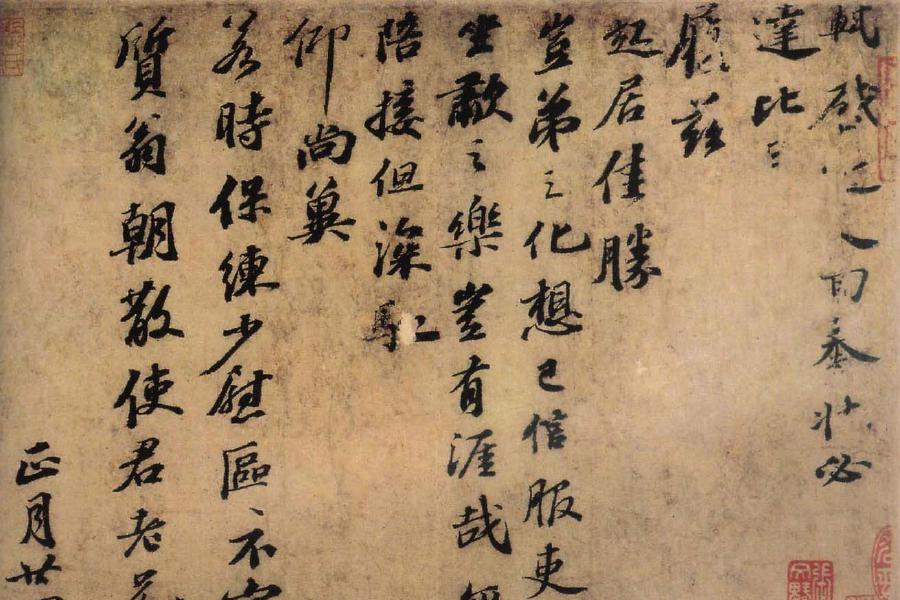 軾啟近人回奉狀必
達比日
履茲
起居佳勝
豈弟之化想已信服吏
坐歗之樂豈有涯哉
陪接但深馳
仰尚冀
若時保練少慰區々不宣
質翁朝散使君老兄
正月廿